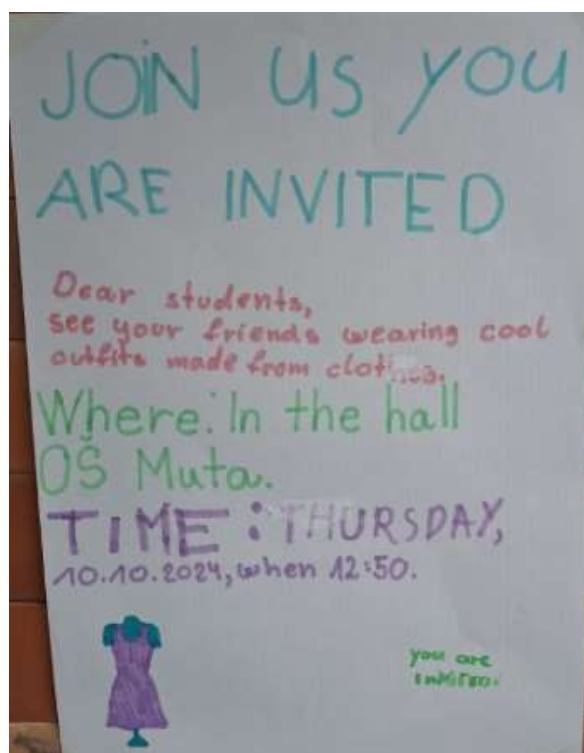 JOIN US YOU
ARE INVITED
Dear students,
see your friends wearing cool
outfits made from clothes.
Where: In the hall
OŠ Muta.
TIME: THURSDAY,
10.10.2024, when 12:50.
you are
INVITED.